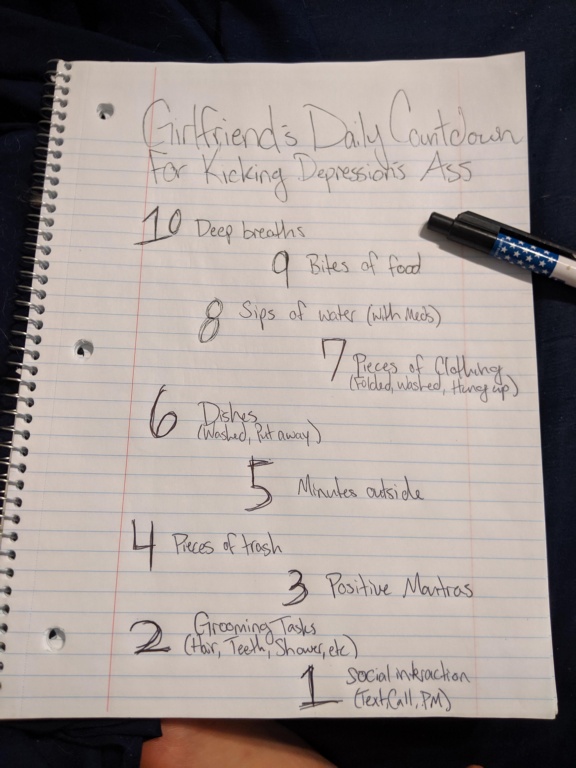 Girlfriend's Daily Countdown
For Kicking Depression's Ass
10 Deep breaths
9 Bites of food
8 Sips of water (with Meds)
7 Pieces of Clothing
(Folded, washed, Hung up)
6 Dishes
(Washed, Put away)
5 Minutes outside
4 Pieces of trash
3 Positive Mantras
2 Grooming Tasks
(Hair, Teeth, Shower, etc)
1 Social interaction
(Text, Call, PM)